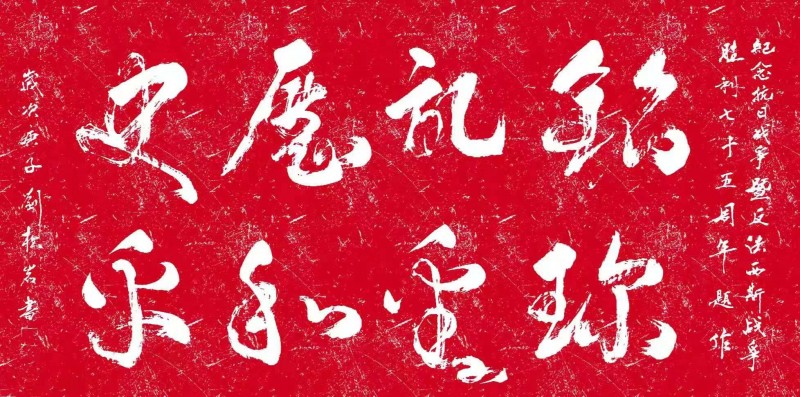 紀念抗日战爭暨反法西斯战爭
胜利七十五周年題作
銘記歷史
珍愛和平
歲次庚子劉岩書